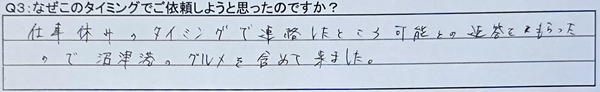 Q3：なぜこのタイミングでご依頼しようと思ったのですか？
仕事休みのタイミングで連絡したところ可能との返答をもらった
ので沼津港のグルメを含めて来ました。